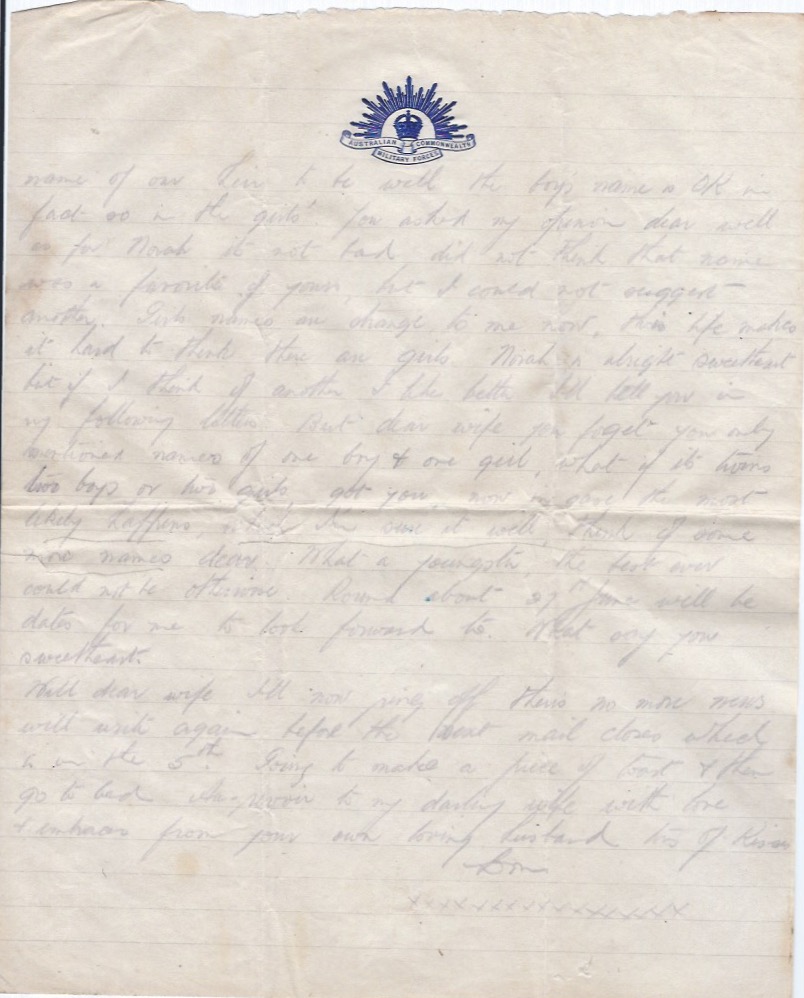 AUSTRALIAN COMMONWEALTH
MILITARY FORCES
name of our heir to be well the boy's name is OK in
fact so is the girls' You asked my opinion dear well
as for Norah it not bad did not think that name
was a favorite of yours, but I could not suggest
another. Girls names are strange to me now, this life makes
it hard to think there are girls. Norah is alright sweetheart
but if I think of another I like better I'll tell you in
my following letters. But dear wife you forget you only
mentioned names of one boy & one girl, what if its twins
two boys or two girls got you now in case the most
likely happens, which I'm sure it will, think of some
more names dear. What a youngster, the best ever
could not be otherwise. Round about 27th June will be
dates for me to look forward to. What say you
sweetheart.
Well dear wife I'll now ring off theres no more news
will write again before the next mail closes which
is on the 5th Going to make a piece of toast & then
go to bed Au revoir to my darling wife with love
& embraces from your own loving husband lots of kisses
xxxxxxxxxxxxxxxx